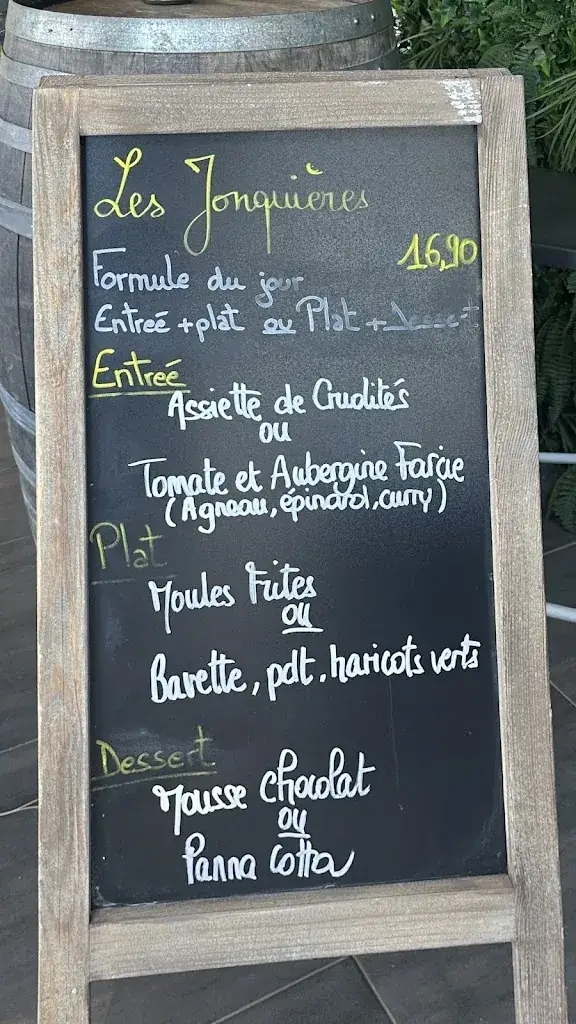 Les Jonquières
16,90
Formule du jour
Entreé + plat ou Plat + Dessert
Entreé
Assiette de Crudités
ou
Tomate et Aubergine Farcie
(Agneau, épinard, curry)
Plat
Moules Frites
ou
Bavette, pdt, haricots verts
Dessert
Mousse chocolat
ou
Panna Cotta